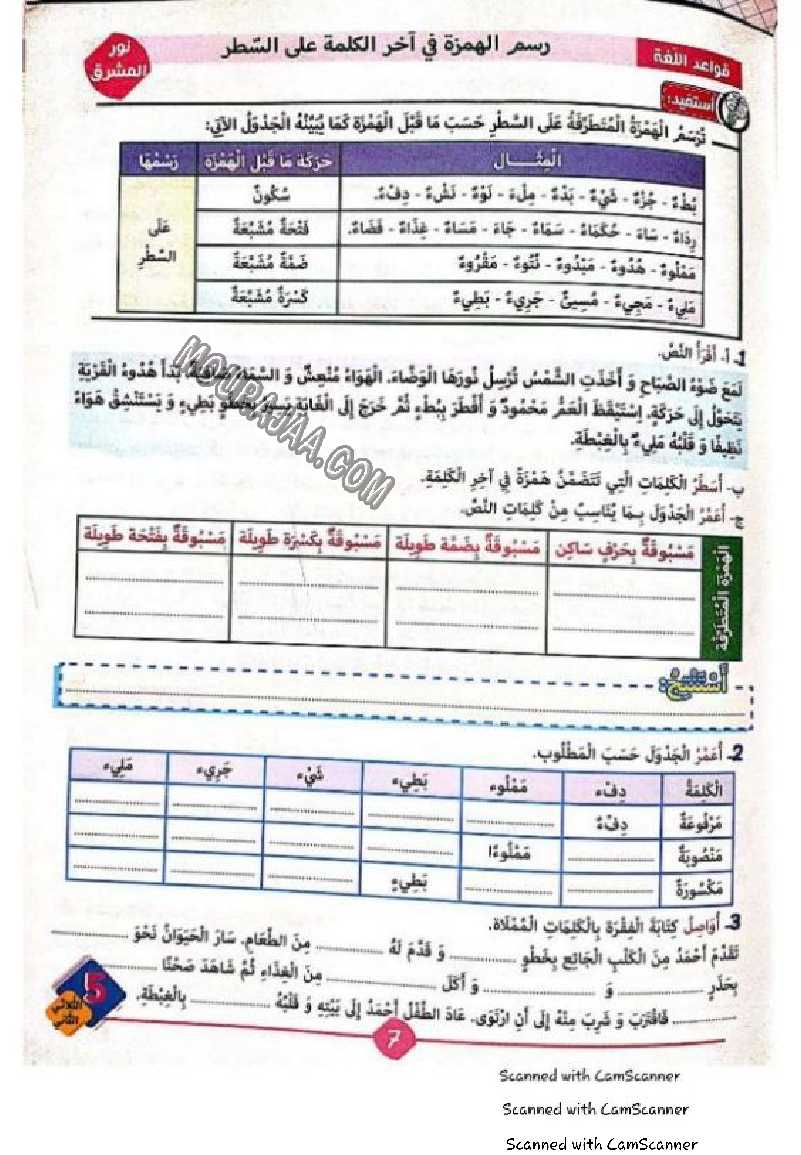 رسم الهمزة في آخر الكلمة على السّطر
قواعد اللّغة
نور المشرق
أستفيد:
تُرْسَمُ الْهَمْزَةُ الْمُتَطَرِّفَةُ عَلَى السَّطْرِ حَسَبَ مَا قَبْلَ الْهَمْزَةِ كَمَا يُبَيِّنُهُ الْجَدْوَلُ الْآتِي:
الْمِثَـــال حَرَكَةُ مَا قَبْلَ الْهَمْزَةِ رَسْمُهَا
بُطْءٌ - جُزْءٌ - شَيْءٌ - بَدْءٌ - مِلْءَ - نَوْءٌ - نَشْءٌ - دِفْءٌ. سُكُونٌ
رِدَاءٌ - سَاءَ - حُكَمَاءُ - سَمَاءٌ - جَاءَ - مَسَاءٌ - غِذَاءٌ - قَضَاءٌ. فَتْحَةٌ مُشْبَعَةٌ
مَمْلُوءٌ - هُدُوءٌ - مَبْدُوءٌ - نُتُوءٌ - مَقْرُوءٌ ضَمَّةٌ مُشْبَعَةٌ
مَلِيءٌ - مَجِيءٌ - مُسِيءٌ - جَرِيءٌ - بَطِيءٌ كَسْرَةٌ مُشْبَعَةٌ
عَلَى السَّطْرِ
1ـ أ- أَقْرَأُ النَّصَّ.
لَمَعَ ضَوْءُ الصَّبَاحِ وَ أَخَذَتِ الشَّمْسُ تُرْسِلُ نُورَهَا الْوَضَّاءَ. الْهَوَاءُ مُنْعِشٌ وَ السَّمَاءُ صَافِيَةٌ. بَدَأَ هُدُوءُ الْقَرْيَةِ
يَتَحَوَّلُ إِلَى حَرَكَةٍ. اِسْتَيْقَظَ الْعَمُّ مَحْمُودٌ وَ أَفْطَرَ بِبُطْءٍ ثُمَّ خَرَجَ إِلَى الْغَابَةِ يَسِيرُ بِخَطْوٍ بَطِيءٍ وَ يَسْتَنْشِقُ هَوَاءً
نَظِيفًا وَ قَلْبُهُ مَلِيءٌ بِالْغِبْطَةِ.
ب- أُسَطِّرُ الْكَلِمَاتِ الَّتِي تَتَضَمَّنُ هَمْزَةً فِي آخِرِ الْكَلِمَةِ.
ج- أُعَمِّرُ الْجَدْوَلَ بِمَا يُنَاسِبُ مِنْ كَلِمَاتِ النَّصِّ.
الْهَمْزَةُ الْمُتَطَرِّفَةُ
مَسْبُوقَةٌ بِحَرْفٍ سَاكِنٍ مَسْبُوقَةٌ بِضَمَّةٍ طَوِيلَةٍ مَسْبُوقَةٌ بِكَسْرَةٍ طَوِيلَةٍ مَسْبُوقَةٌ بِفَتْحَةٍ طَوِيلَةٍ
أَسْتَنْتِجُ:
2ـ أُعَمِّرُ الْجَدْوَلَ حَسَبَ الْمَطْلُوبِ.
الْكَلِمَةُ دِفْء مَمْلُوء بَطِيء شَيْء جَرِيء مَلِيء
مَرْفُوعَةٌ دِفْءٌ
مَنْصُوبَةٌ مَمْلُوءًا
مَكْسُورَةٌ بَطِيءٍ
3ـ أُوَاصِلُ كِتَابَةَ الْفِقْرَةِ بِالْكَلِمَاتِ الْمُمْلَاةِ.
تَقَدَّمَ أَحْمَدُ مِنَ الْكَلْبِ الْجَائِعِ بِخَطْوٍ .......... وَ قَدَّمَ لَهُ .......... مِنَ الطَّعَامِ. سَارَ الْحَيَوَانُ نَحْوَ ..........
بِحَذَرٍ .......... وَ .......... وَ أَكَلَ .......... مِنَ الْغِذَاءِ ثُمَّ شَاهَدَ صَحْنًا ..........
.......... فَاقْتَرَبَ وَ شَرِبَ مِنْهُ إِلَى أَنِ ارْتَوَى. عَادَ الطِّفْلُ أَحْمَدُ إِلَى بَيْتِهِ وَ قَلْبُهُ .......... بِالْغِبْطَةِ.
5
الثلاثي الثاني
7
MOURAJAA.COM
Scanned with CamScanner
Scanned with CamScanner
Scanned with CamScanner